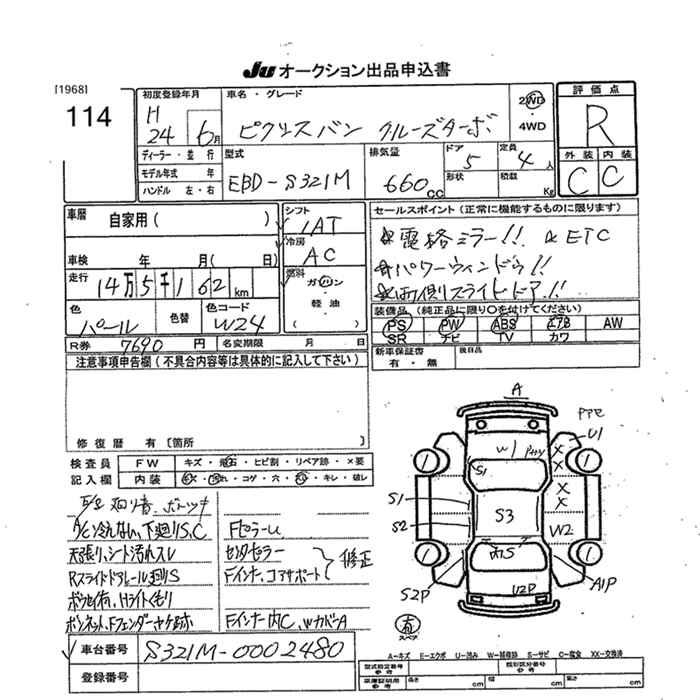 JU オークション出品申込書
[1968]
114
初度登録年月
H 24 6月
車名・グレード
ピクシスバン クルーズターボ
2WD
4WD
評価点
R
外装 内装
C C
ディーラー・並行
モデル年式 年
ハンドル 左・右
型式
EBD-S321M
排気量
660cc
ドア 5
形状
定員 4人
積載 Kg
車歴
自家用( )
車検 年 月( 日)
走行 14万5千162km
色 パール
色替
色コード W24
シフト
IAT
冷房
AC
燃料
ガソリン
・
軽油
セールスポイント(正常に機能するものに限ります)
☆電格ミラー!! ☆ETC
☆パワーウィンドゥ!!
☆両側スライドドア!!
装備品(純正品に限り○を付けてください)
PS PW ABS エアB AW
SR ナビ TV カワ
R券 7690円
名変期限 月 日
新車保証書
有・無
後日品
注意事項申告欄(不具合内容等は具体的に記入して下さい)
修復歴 有〔箇所
検査員
記入欄
FW
キズ・飛石・ヒビ割・リペア跡・×要
内装
キズ・汚れ・コゲ・穴・・キレ・破レ
A/C冷れない、下廻りS,C
天張り、シート汚れスレ
RスライドドアレールS
Hライトくもり
ボンネット、Fフェンダーヤケ
FピラーU
センタピラー
Fインナー、コアサポート
修正
Fインナー内C、
車台番号
S321M-0002480
登録番号
A
U1
W1
S1
S1
S2
S3
W2
S2P
U2P
A1P
1
1
1
1
有
スペア
A-キズ E-エクボ U-凹み W-補修跡 S-サビ C-腐食 XX-交換済
型式指定番号
参考
類別区分番号
参考
車庫証明用
参考
長さ cm
幅 cm
高さ cm